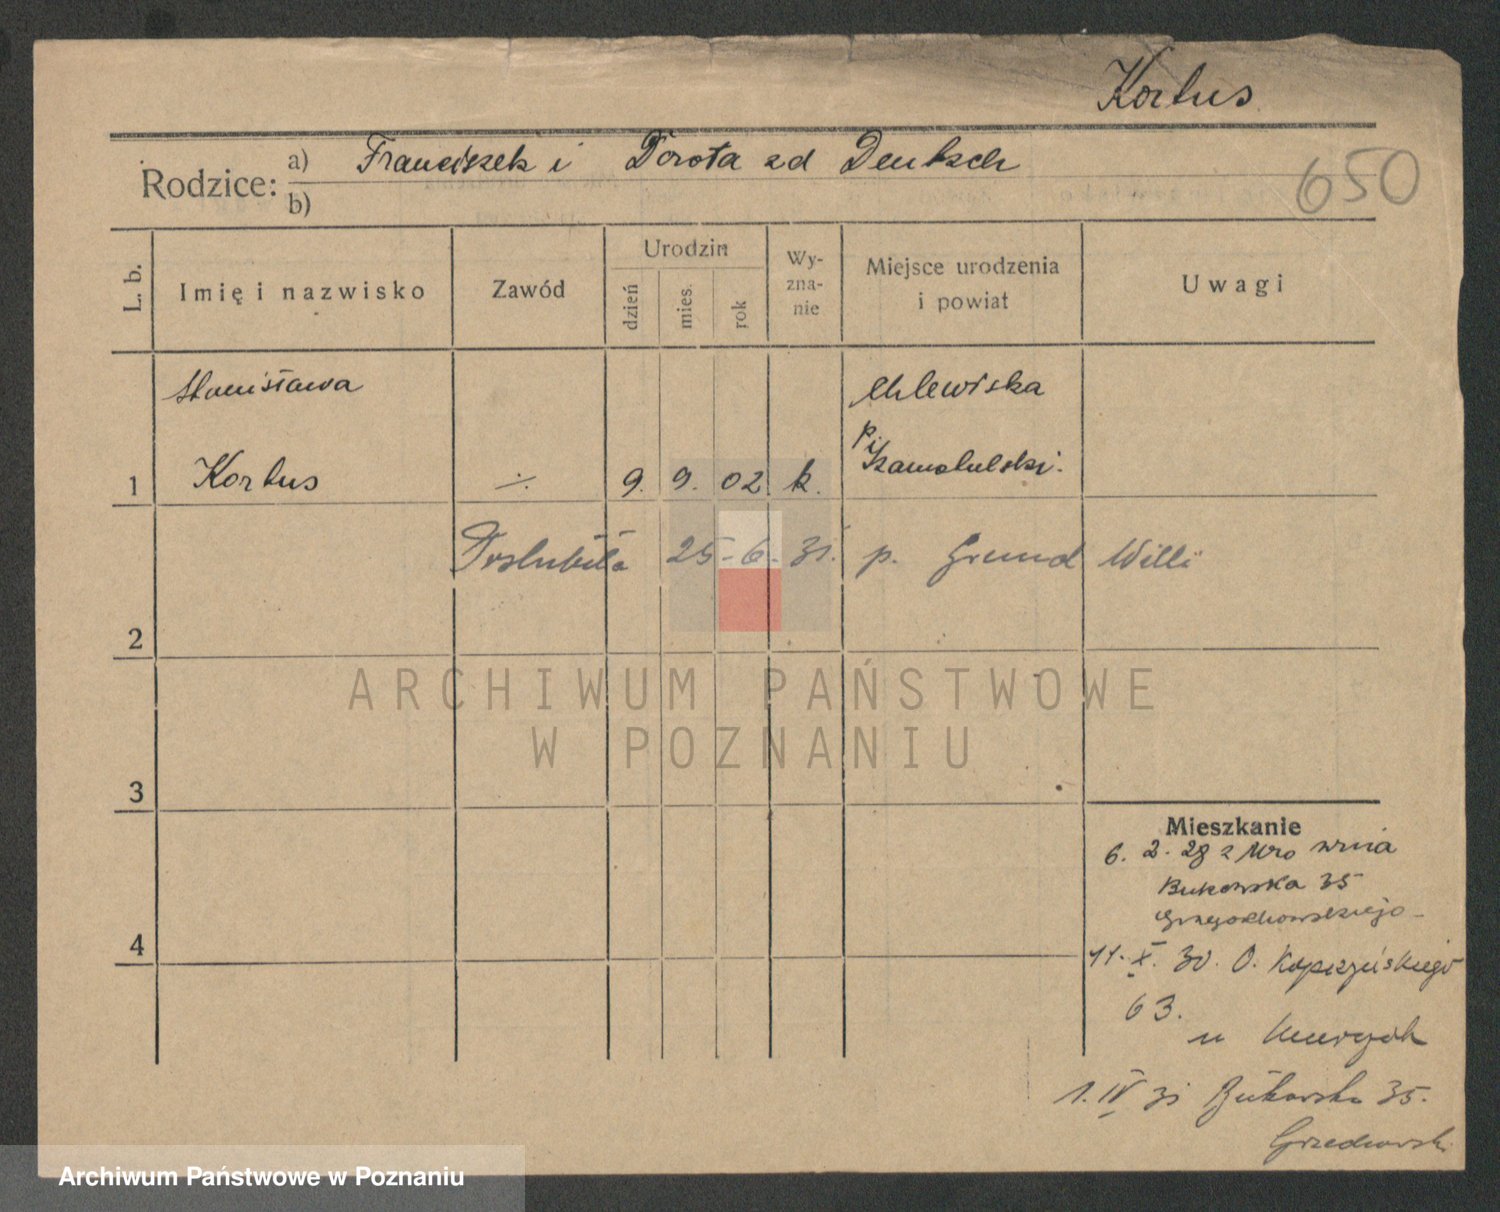 Kortus
Rodzice: a) Franciszek i Dorota zd Deutsch
b)
650
L. b.
Imię i nazwisko
Zawód
Urodzin
dzień
mies.
rok
Wy-
zna-
nie
Miejsce urodzenia
i powiat
Uwagi
Stanisława
Chlewiska
p.
Szamotulski.
1 Kortus ·/. 9. 9. 02 k.
Poslubiła 25-6-31. p. Grund Willi
2
3
4
Mieszkanie
6. 2. 28 z
Bukowska 35
11. X. 30. O. Kopczyńskiego
63.
u
1. IV 31 Bukowska 35.
ARCHIWUM PAŃSTWOWE
W POZNANIU
Archiwum Państwowe w Poznaniu